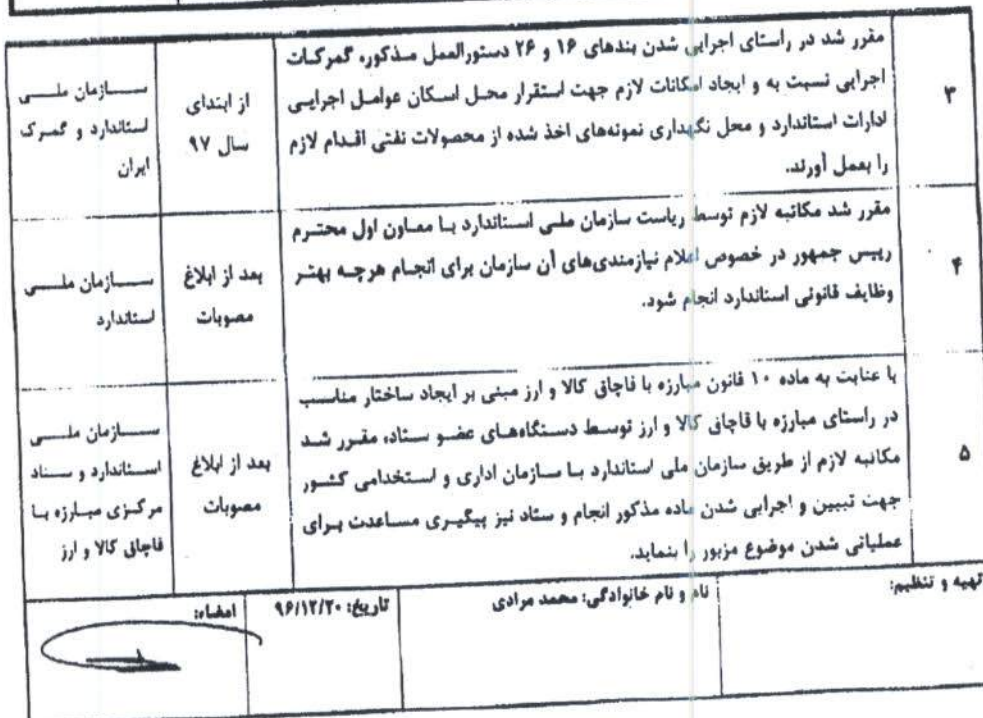 ۳
مقرر شد در راستای اجرایی شدن بندهای ۱۶ و ۲۶ دستورالعمل مذکور، گمرکات
اجرایی نسبت به و ایجاد امکانات لازم جهت استقرار محل اسکان عوامل اجرایی
ادارات استاندارد و محل نگهداری نمونه‌های اخذ شده از محصولات نفتی اقدام لازم
را بعمل آورند.
از ابتدای
سال ۹۷
سازمان ملی
استاندارد و گمرک
ایران
۴
مقرر شد مکاتبه لازم توسط ریاست سازمان ملی استاندارد با معاون اول محترم
رییس جمهور در خصوص اعلام نیازمندی‌های آن سازمان برای انجام هرچه بهتر
وظایف قانونی استاندارد انجام شود.
بعد از ابلاغ
مصوبات
سازمان ملی
استاندارد
۵
با عنایت به ماده ۱۰ قانون مبارزه با قاچاق کالا و ارز مبنی بر ایجاد ساختار مناسب
در راستای مبارزه با قاچاق کالا و ارز توسط دستگاه‌های عضو ستاد، مقرر شد
مکاتبه لازم از طریق سازمان ملی استاندارد با سازمان اداری و استخدامی کشور
جهت تبیین و اجرایی شدن ماده مذکور انجام و ستاد نیز پیگیری مساعدت برای
عملیاتی شدن موضوع مزبور را بنماید.
بعد از ابلاغ
مصوبات
سازمان ملی
استاندارد و ستاد
مرکزی مبارزه با
قاچاق کالا و ارز
تهیه و تنظیم:
نام و نام خانوادگی: محمد مرادی
تاریخ: ۹۶/۱۲/۲۰
امضاء: